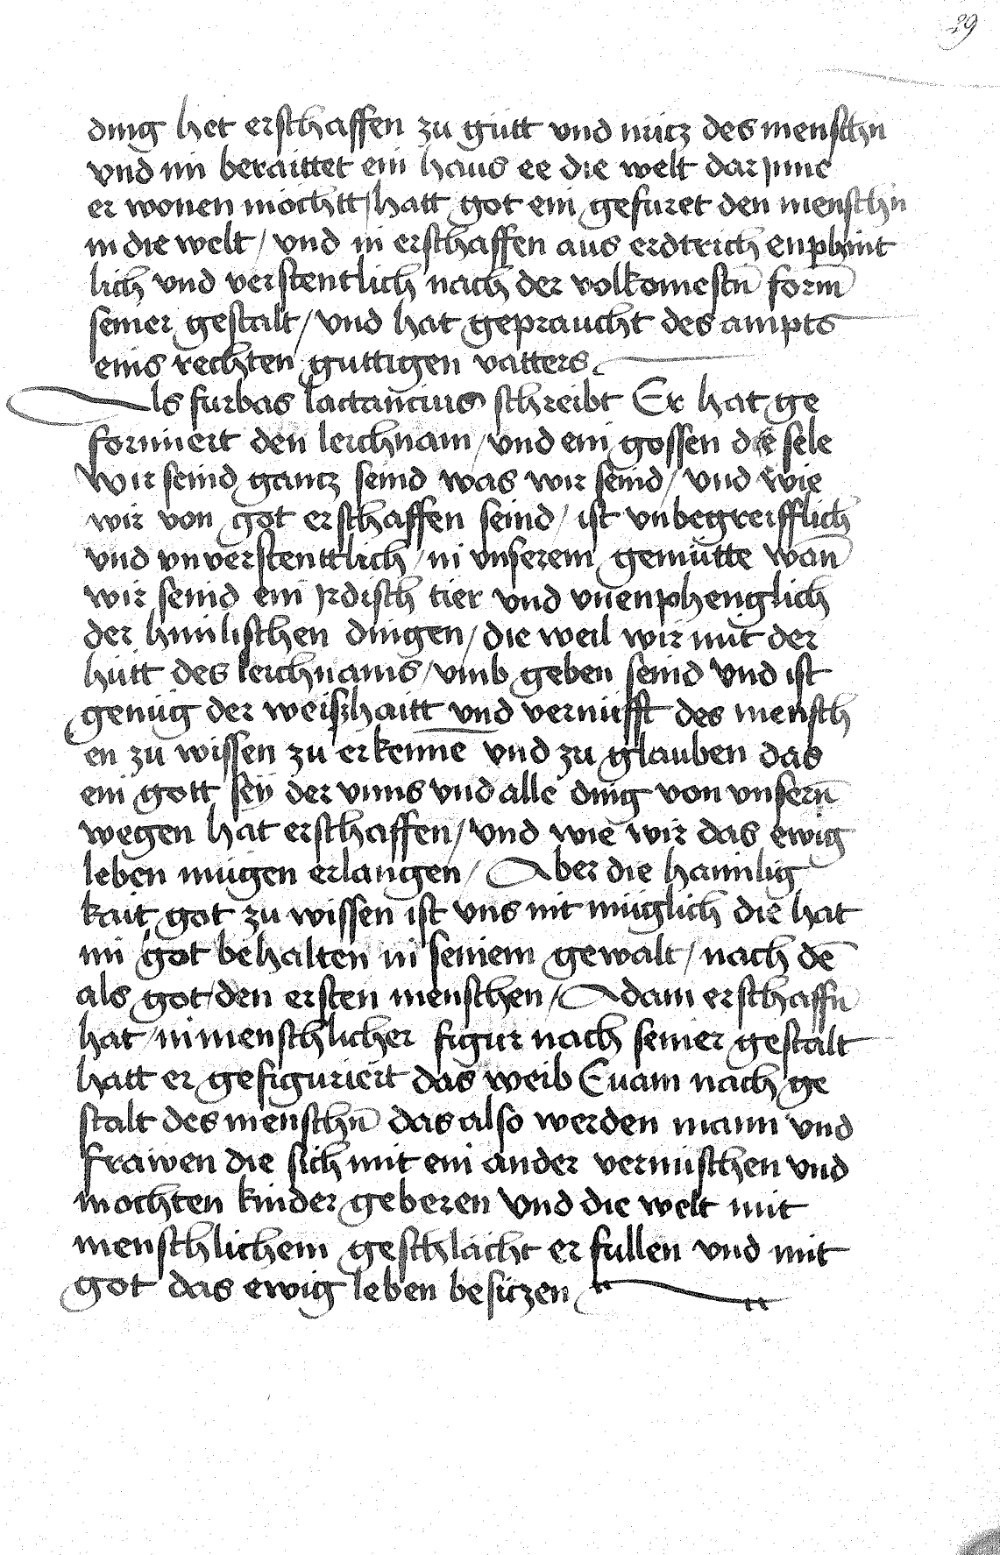 29
ding het erschaffen zu gutt vnd nutz des menschn
vnd im beraittet ein haus ee die welt dar jnne
er wonen mochtt / hatt got ein gefuret den menschn
in die welt / vnd in erschaffen aus erdtrich enphint
lich vnd verstentlich nach der volkomestn̄ form̄
seiner gestalt / vnd hat gepraucht des ampts
eins rechten guttigen vatters
Als furbas lactancius schreibt Er hat ge
formiert den leichnam / vnd ein gossen die sele
wir seind gantz seind was wir seind / vnd wie
wir von got erschaffen seind / ist vnbegreifflich
vnd vnverstenttlich / in vnserem gemütte wan̄
wir seind ein jrdisch tier vnd vnenphenglich
der himlischen dingen / die weil wir mit der
hütt des leichnams / vmb geben seind vnd ist
genüg der weiszhaitt vnd vernüfft des mensch
en zu wissen zu erkenne̅ vnd zu glauben das
ein gott seÿ der vnns vnd alle ding von vnsern̄
wegen hat erschaffen / vnd wie wir das ewig
leben mügen erlangen / Aber die haimlig
kait got zu wissen ist vns nit müglich die hat
im got behalten in seinem gewalt / nach de̅
als got den ersten menschen / Adam erschaffn̄
hat / in menschlicher figur nach seiner gestalt
hatt er gefiguriert das weib Euam nach ge
stalt des menschn̄ das also werden mann vnd
frawen die sich mit ein ander vermischen vnd
mochten kinder geberen vnd die welt mit
menschlichem geschlächt er fullen vnd mit
got das ewig leben besitzen